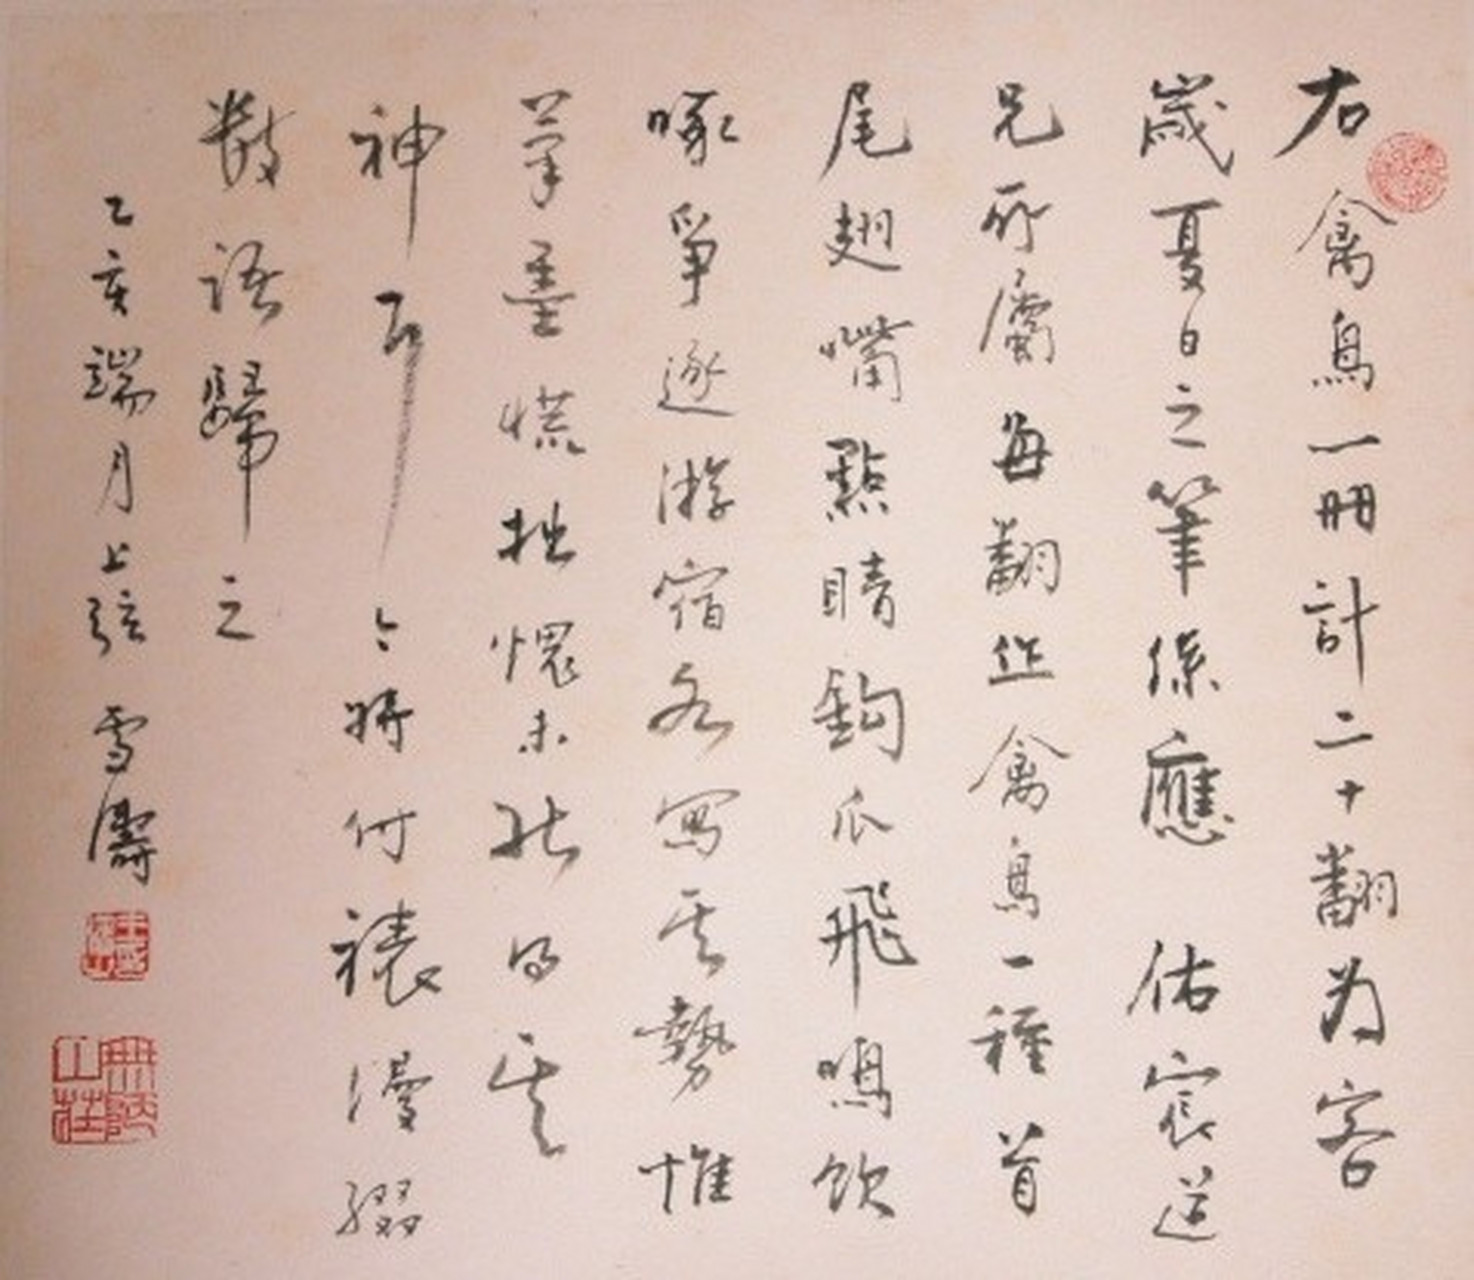 右禽鳥一冊計二十翻为客
歲夏日之筆係應佑宸道
兄所屬每翻作禽鳥一種首
尾翅嘴點睛鈎爪飛鳴飲
啄爭逐游宿各写其勢惟
筆墨慌拙愧未能得其
神耳今將付裱漫綴
數語歸之
乙亥端月上弦雪濤